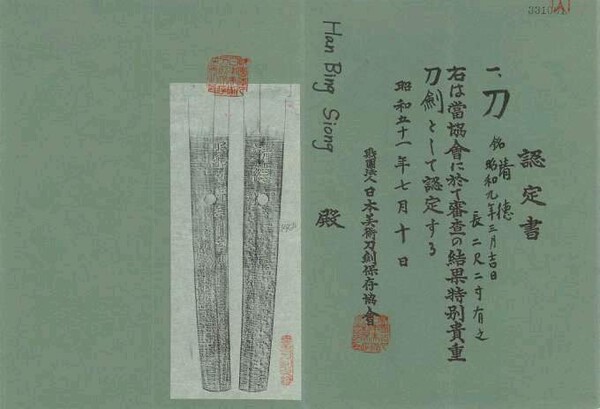 認定書
一、刀
銘 靖徳
昭和九年三月吉日
長二尺二寸有之
右は當協會に於て審査の結果特別貴重
刀劍として認定する
昭和五十一年七月十日
財團法人日本美術刀劍保存協會
殿
Han Bing Siong